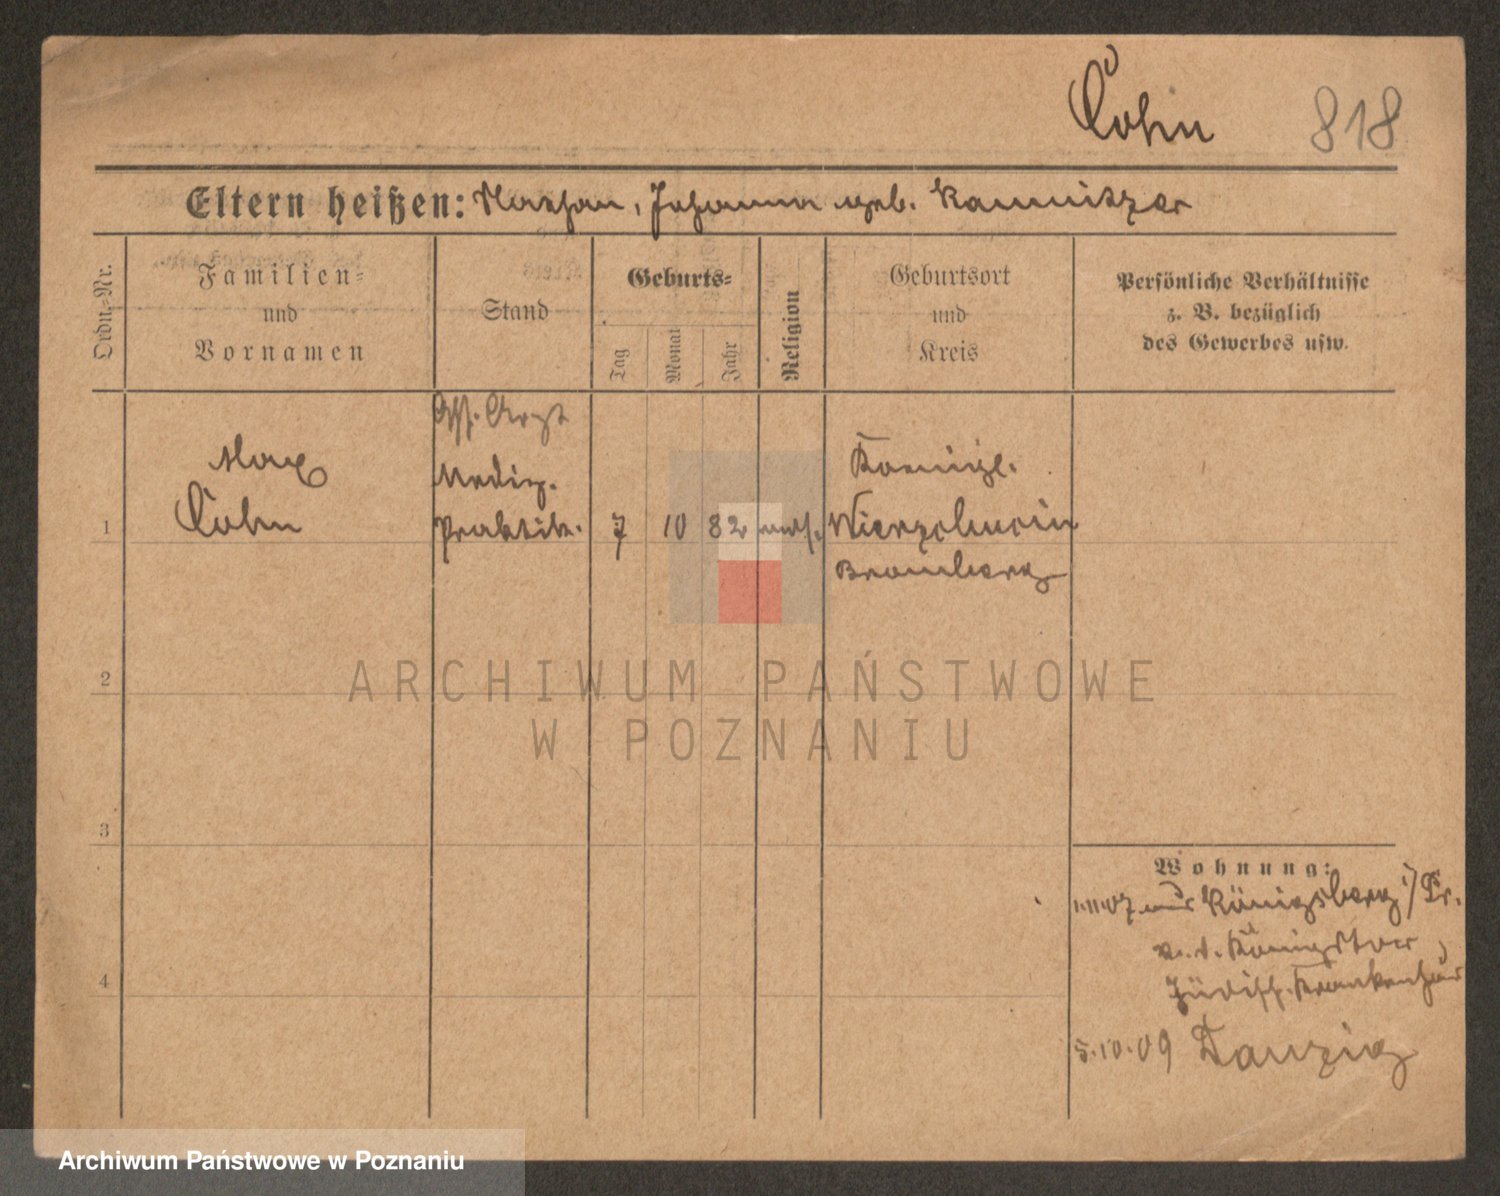 Cohn 818
Eltern heißen: Nathan, Johanna geb. Kamnitzer
Ordn.-Nr.
Familien-
und
Vornamen
Stand
Geburts-
Tag
Monat
Jahr
Religion
Geburtsort
und
Kreis
Persönliche Verhältnisse
z. B. bezüglich
des Gewerbes usw.
Ass. Arzt
Max
Cohn
Mediz.
Praktik.
1
7 10 82 mos.
Koenigl.
Wierzchucin
Bromberg
2
ARCHIWUM PAŃSTWOWE
W POZNANIU
3
Wohnung:
1.11.07 aus Königsberg i/Pr.
v. d. Königstor
Jüdisch. Krankenhaus
4
5.10.09 Danzig
Archiwum Państwowe w Poznaniu